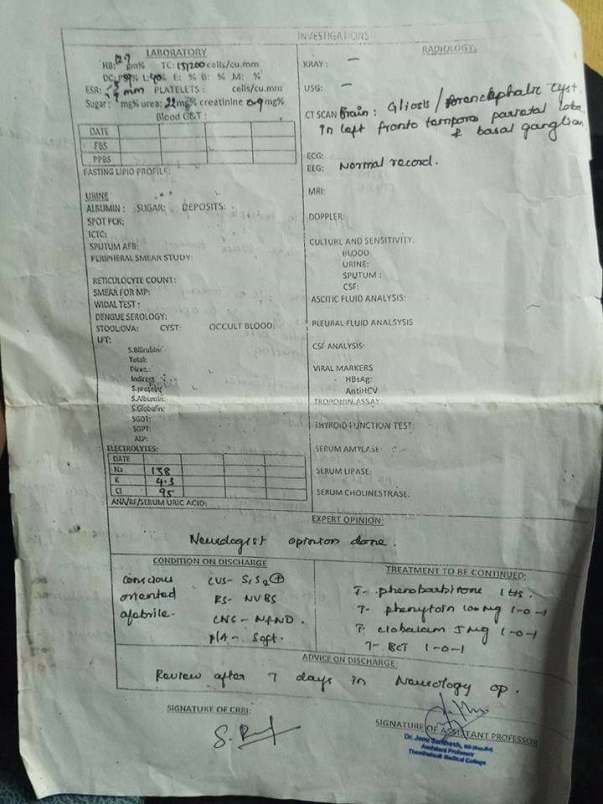 INVESTIGATIONS
LABORATORY
HB: 12.9 gm% TC: 15,200 cells/cu.mm
DC: P: 59% L: 40% E: % B: % M: %
ESR: mm PLATELETS : cells/cu.mm
Sugar : mg% urea: 22 mg% creatinine 0.9 mg%
Blood C&T :
DATE
FBS
PPBS
FASTING LIPID PROFILE:
URINE
ALBUMIN : SUGAR: DEPOSITS:
SPOT PCR:
ICTC:
SPUTUM AFB:
PERIPHERAL SMEAR STUDY:
RETICULOCYTE COUNT:
SMEAR FOR MP:
WIDAL TEST :
DENGUE SEROLOGY:
STOOL:OVA: CYST: OCCULT BLOOD:
LFT:
S.Bilirubin:
Total:
Direct:
Indirect
S.protein:
S.Albumin:
S.Globulin:
SGOT:
SGPT:
ALP:
ELECTROLYTES:
DATE
Na 138
K 4.3
Cl 95
ANA/RF/SERUM URIC ACID:
RADIOLOGY:
XRAY: -
USG: -
CT SCAN Brain: Gliosis / Porencephalic cyst
in left fronto temporo parietal lobe
& basal ganglian
ECG:
EEG: Normal record.
MRI:
DOPPLER:
CULTURE AND SENSITIVITY:
BLOOD:
URINE:
SPUTUM :
CSF:
ASCITIC FLUID ANALYSIS:
PLEURAL FLUID ANALSYSIS
CSF ANALYSIS:
VIRAL MARKERS
HBsAg:
AntiHCV
TROPONIN ASSAY:
THYROID FUNCTION TEST:
SERUM AMYLASE:
SERUM LIPASE:
SERUM CHOLINESTRASE:
EXPERT OPINION:
Neurologist opinion done.
CONDITION ON DISCHARGE
conscious CVS- S1S2 ⊕
oriented RS- NVBS
afebrile. CNS - NFND.
P/A - Soft.
TREATMENT TO BE CONTINUED:
T- phenobarbitone 1 HS
T- phenytoin 100 mg 1-0-1
T- clobazam 5 mg 1-0-1
T- BCT 1-0-1
ADVICE ON DISCHARGE:
Review after 7 days in Neurology op.
SIGNATURE OF CRRI:
SIGNATURE OF ASSISTANT PROFESSOR
Assistant Professor
Medical College